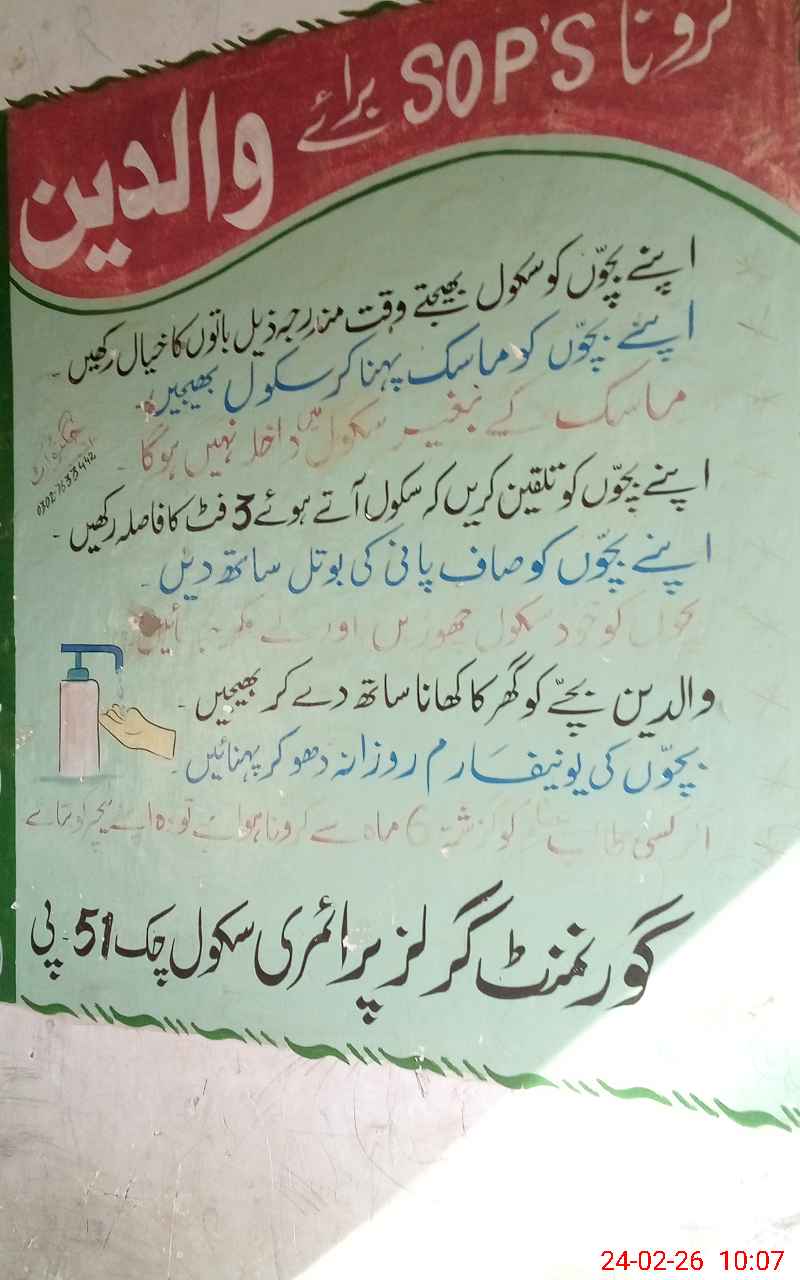 کرونا SOP'S برائے والدین
اپنے بچّوں کو سکول بھیجتے وقت مندرجہ ذیل باتوں کا خیال رکھیں۔
اپنے بچّوں کو ماسک پہنا کر سکول بھیجیں۔
ماسک کے بغیر سکول میں داخلہ نہیں ہوگا۔
اپنے بچّوں کو تلقین کریں کہ سکول آتے ہوئے 3 فٹ کا فاصلہ رکھیں۔
0302-7633442
اپنے بچّوں کو صاف پانی کی بوتل ساتھ دیں۔
بچوں کو خود سکول چھوڑیں اور لے کر جائیں
والدین بچّے کو گھر کا کھانا ساتھ دے کر بھیجیں۔
بچّوں کی یونیفارم روزانہ دھو کر پہنائیں۔
اگر کسی طالب کو گزشتہ 6 ماہ سے کرونا ہوا ہے تو وہ اپنے ٹیچر کو بتائے
گورنمنٹ گرلز پرائمری سکول چک 51۔پی
24-02-26 10:07